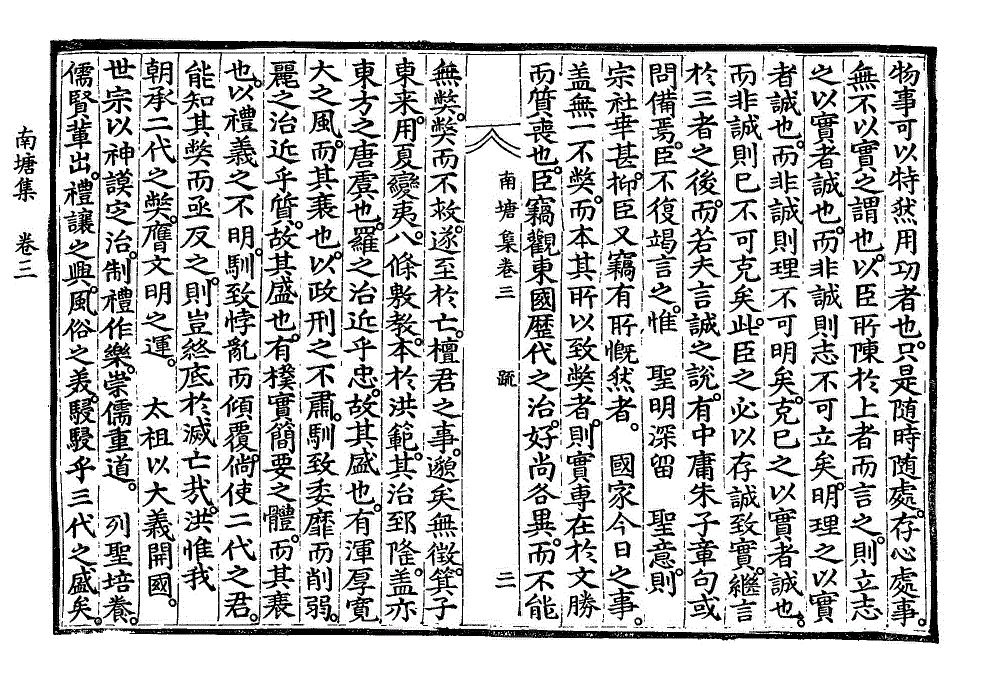 物事可以特然用功者也。只是随時随處。存心處事。
無不以實之謂也。以臣所陳於上者而言之。則立志
之以實者誠也。而非誠則志不可立矣。明理之以實
者誠也。而非誠則理不可明矣。克己之以實者誠也。
而非誠則已不可克矣。此臣之必以存誠致實。繼言
於三者之後。而若夫言誠之說。有中庸朱子章句或
問備焉。臣不復竭言之。惟 聖明深留 聖意。則
宗社幸甚。抑臣又竊有所慨然者。 國家今日之事。
盖無一不弊。而本其所以致弊者。則實専在於文勝
而質喪也。臣竊觀東國歷代之治。好尚各異。而不能
南塘集卷三 疏 二
無弊。弊而不救。遂至於亡。檀君之事。邈矣無徵。箕子
東来。用夏變夷。八條敷教。本於洪範。其治郅隆。盖亦
東方之唐虞也。羅之治近乎忠。故其盛也。有渾厚寬
大之風。而其衰也。以政刑之不肅。馴致委靡而削弱。
麗之治近乎質。故其盛也。有樸實簡要之體。而其衰
也。以禮義之不明。馴致悖亂而傾覆。倘使二代之君。
能知其弊而亟反之。則豈終底於滅亡哉。洪惟我
朝承二代之弊。膺文明之運。 太祖以大義開國。
世宗以神謨定治。制禮作樂。崇儒重道。 列聖培養。
儒賢輩出。禮讓之興。風俗之羙。駸駸乎三代之盛矣。
南塘集 卷三